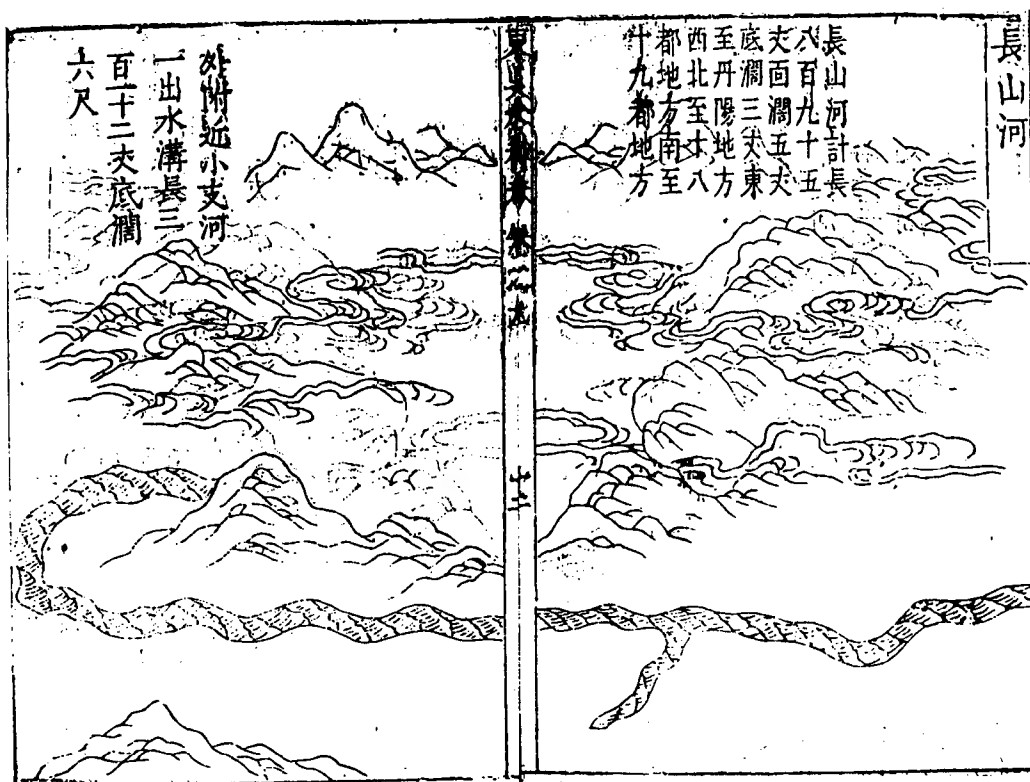 長山河
長山河計長
八百九十五
丈面濶五丈
底濶三丈東
至丹陽地方
西北至十八
都地方南至
十九都地方
東吳水利考 卷之九
十二
附近小支河
一出水溝長三
百十二丈底濶
六尺